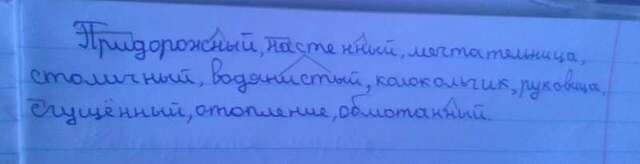 Придорожный, настенный, мечтательница,
столичный, водянистый, колокольчик, руковица,
сгущённый, отопление, обмотанный.